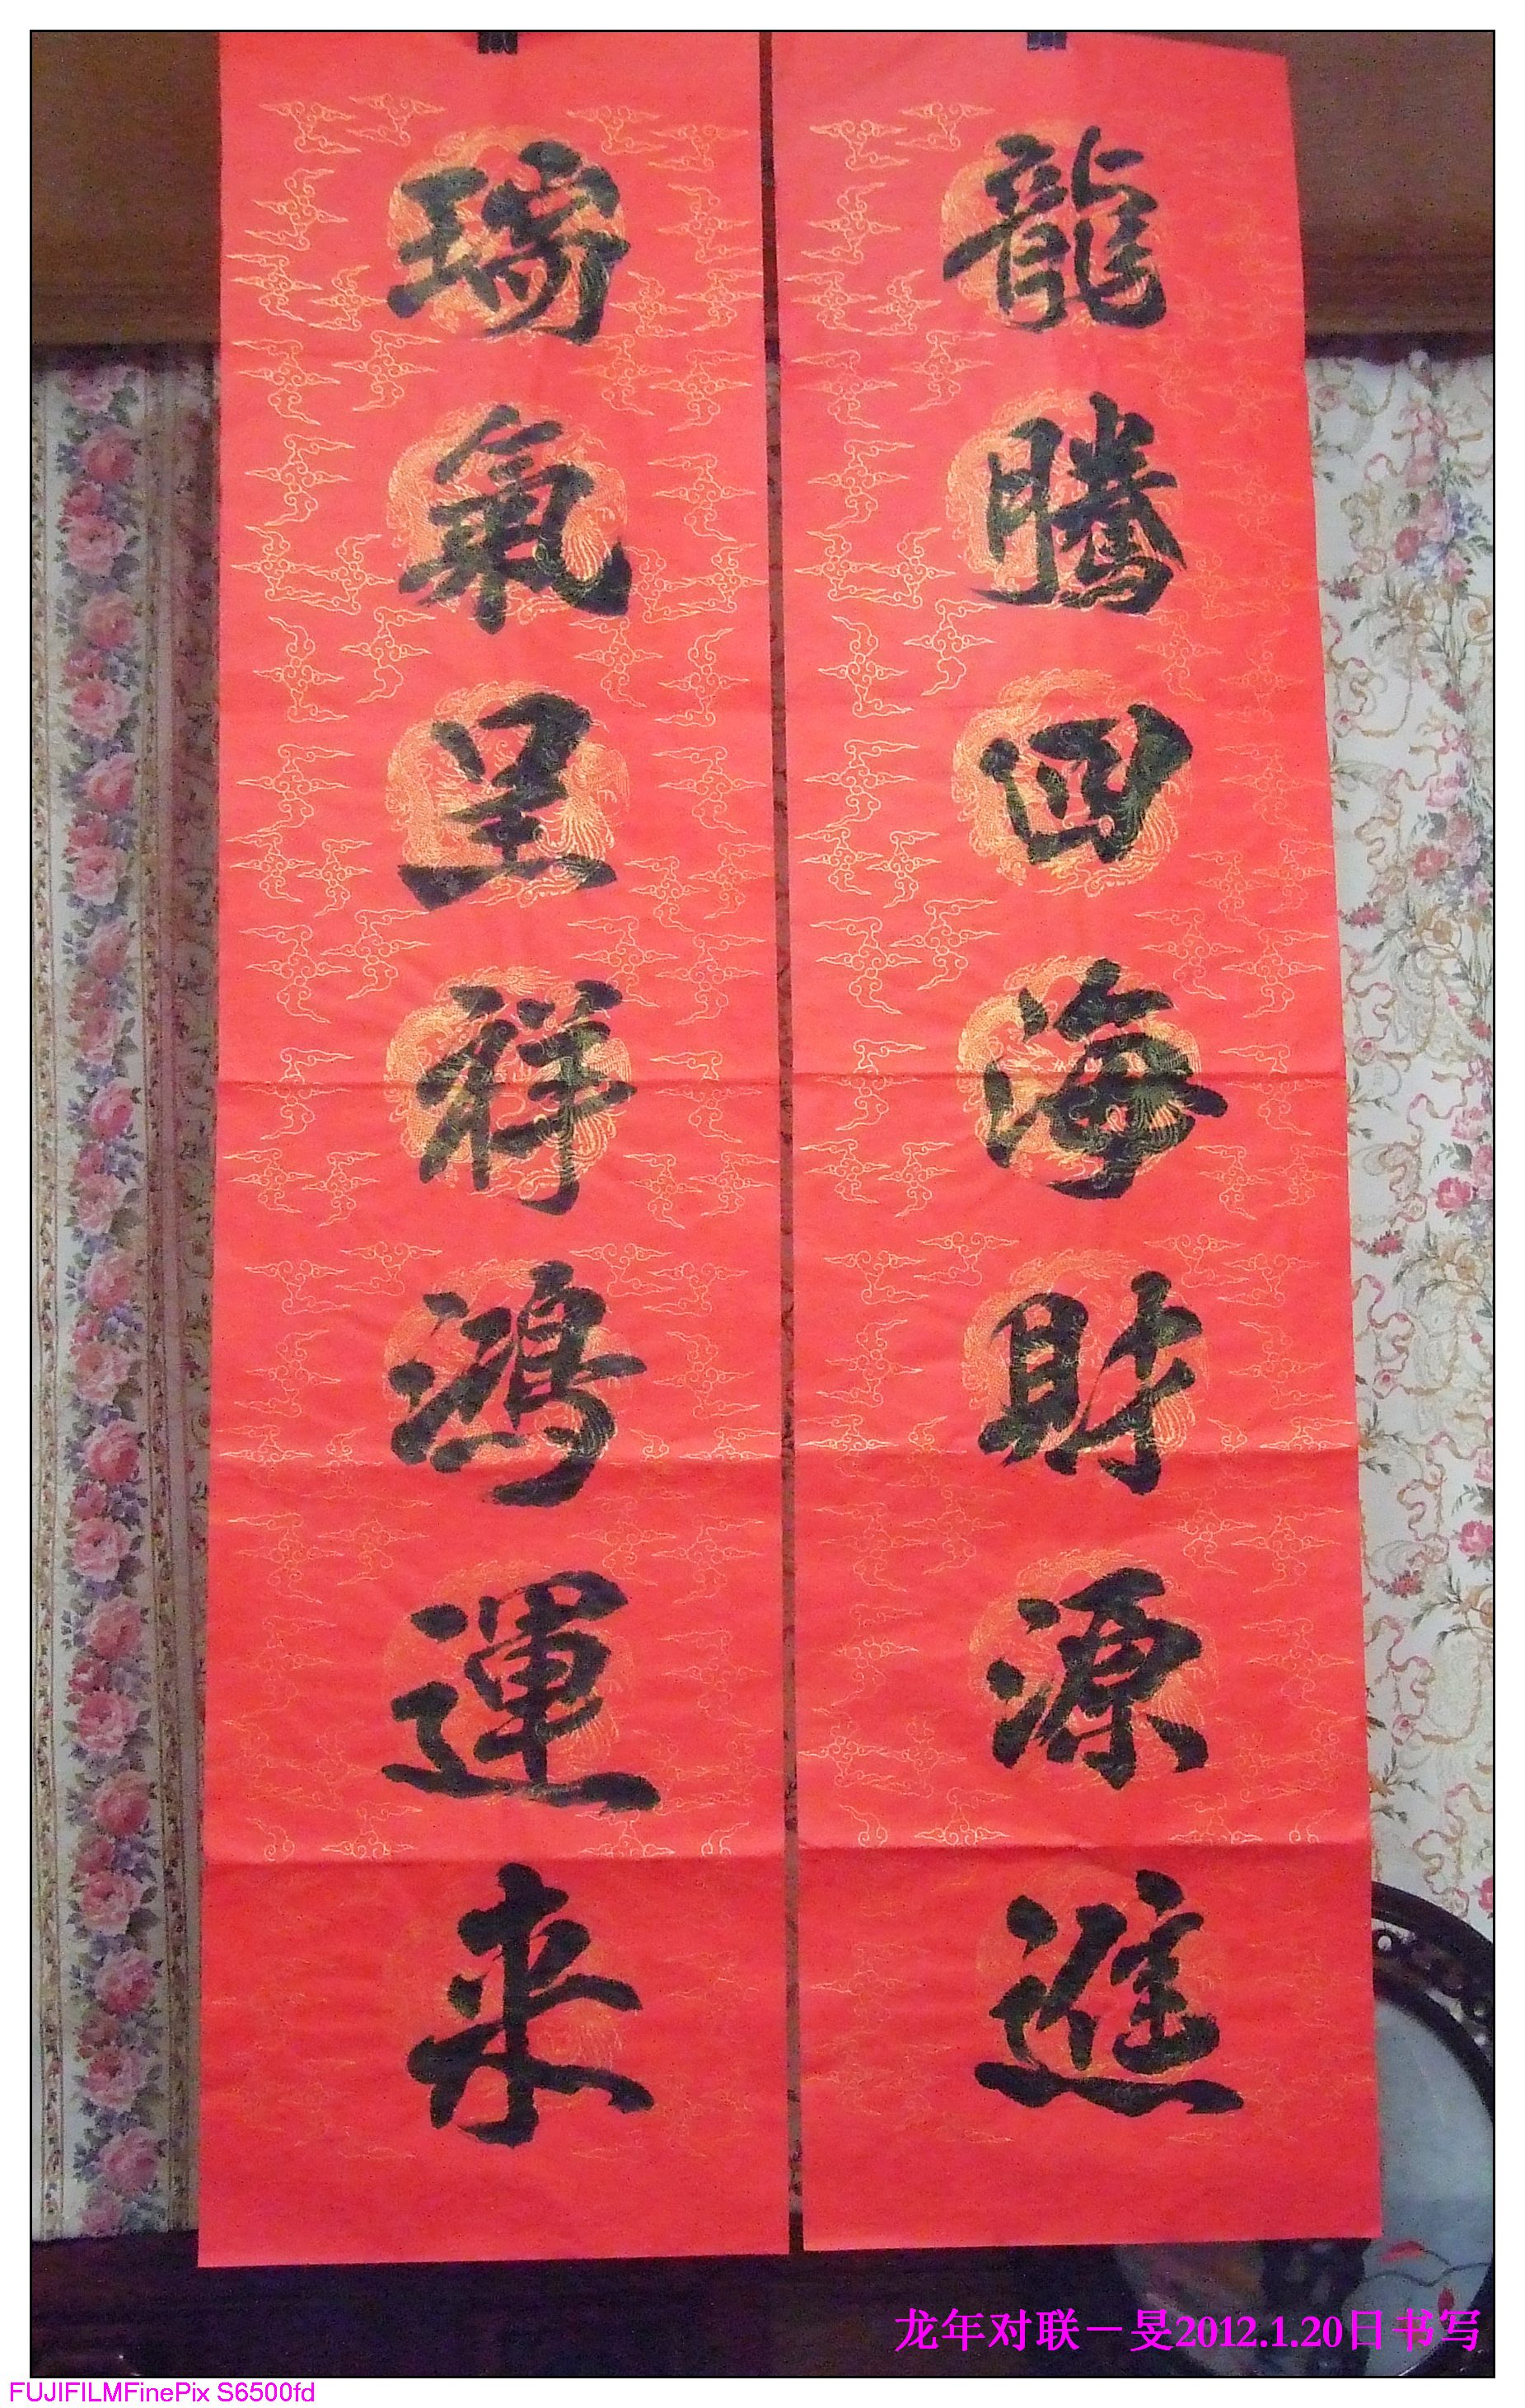 龍騰四海財源進
瑞氣呈祥鴻運来
龙年对联－旻2012.1.20日书写
FUJIFILMFinePix S6500fd